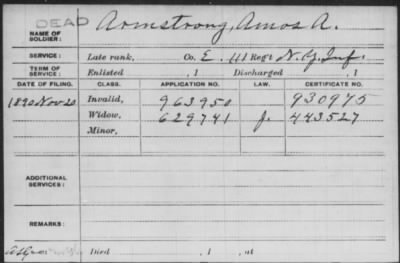 DEAD
NAME OF SOLDIER: Armstrong, Amos A.
SERVICE: Late rank, Co. E, 111 Reg't N.Y. Inf.
TERM OF SERVICE: Enlisted , 1 Discharged , 1
DATE OF FILING. CLASS. APPLICATION NO. LAW. CERTIFICATE NO.
1890 Nov 20 Invalid, 963950 930975
Widow, 629741 J. 443527
Minor,
ADDITIONAL SERVICES:
REMARKS:
Died , 1 , at